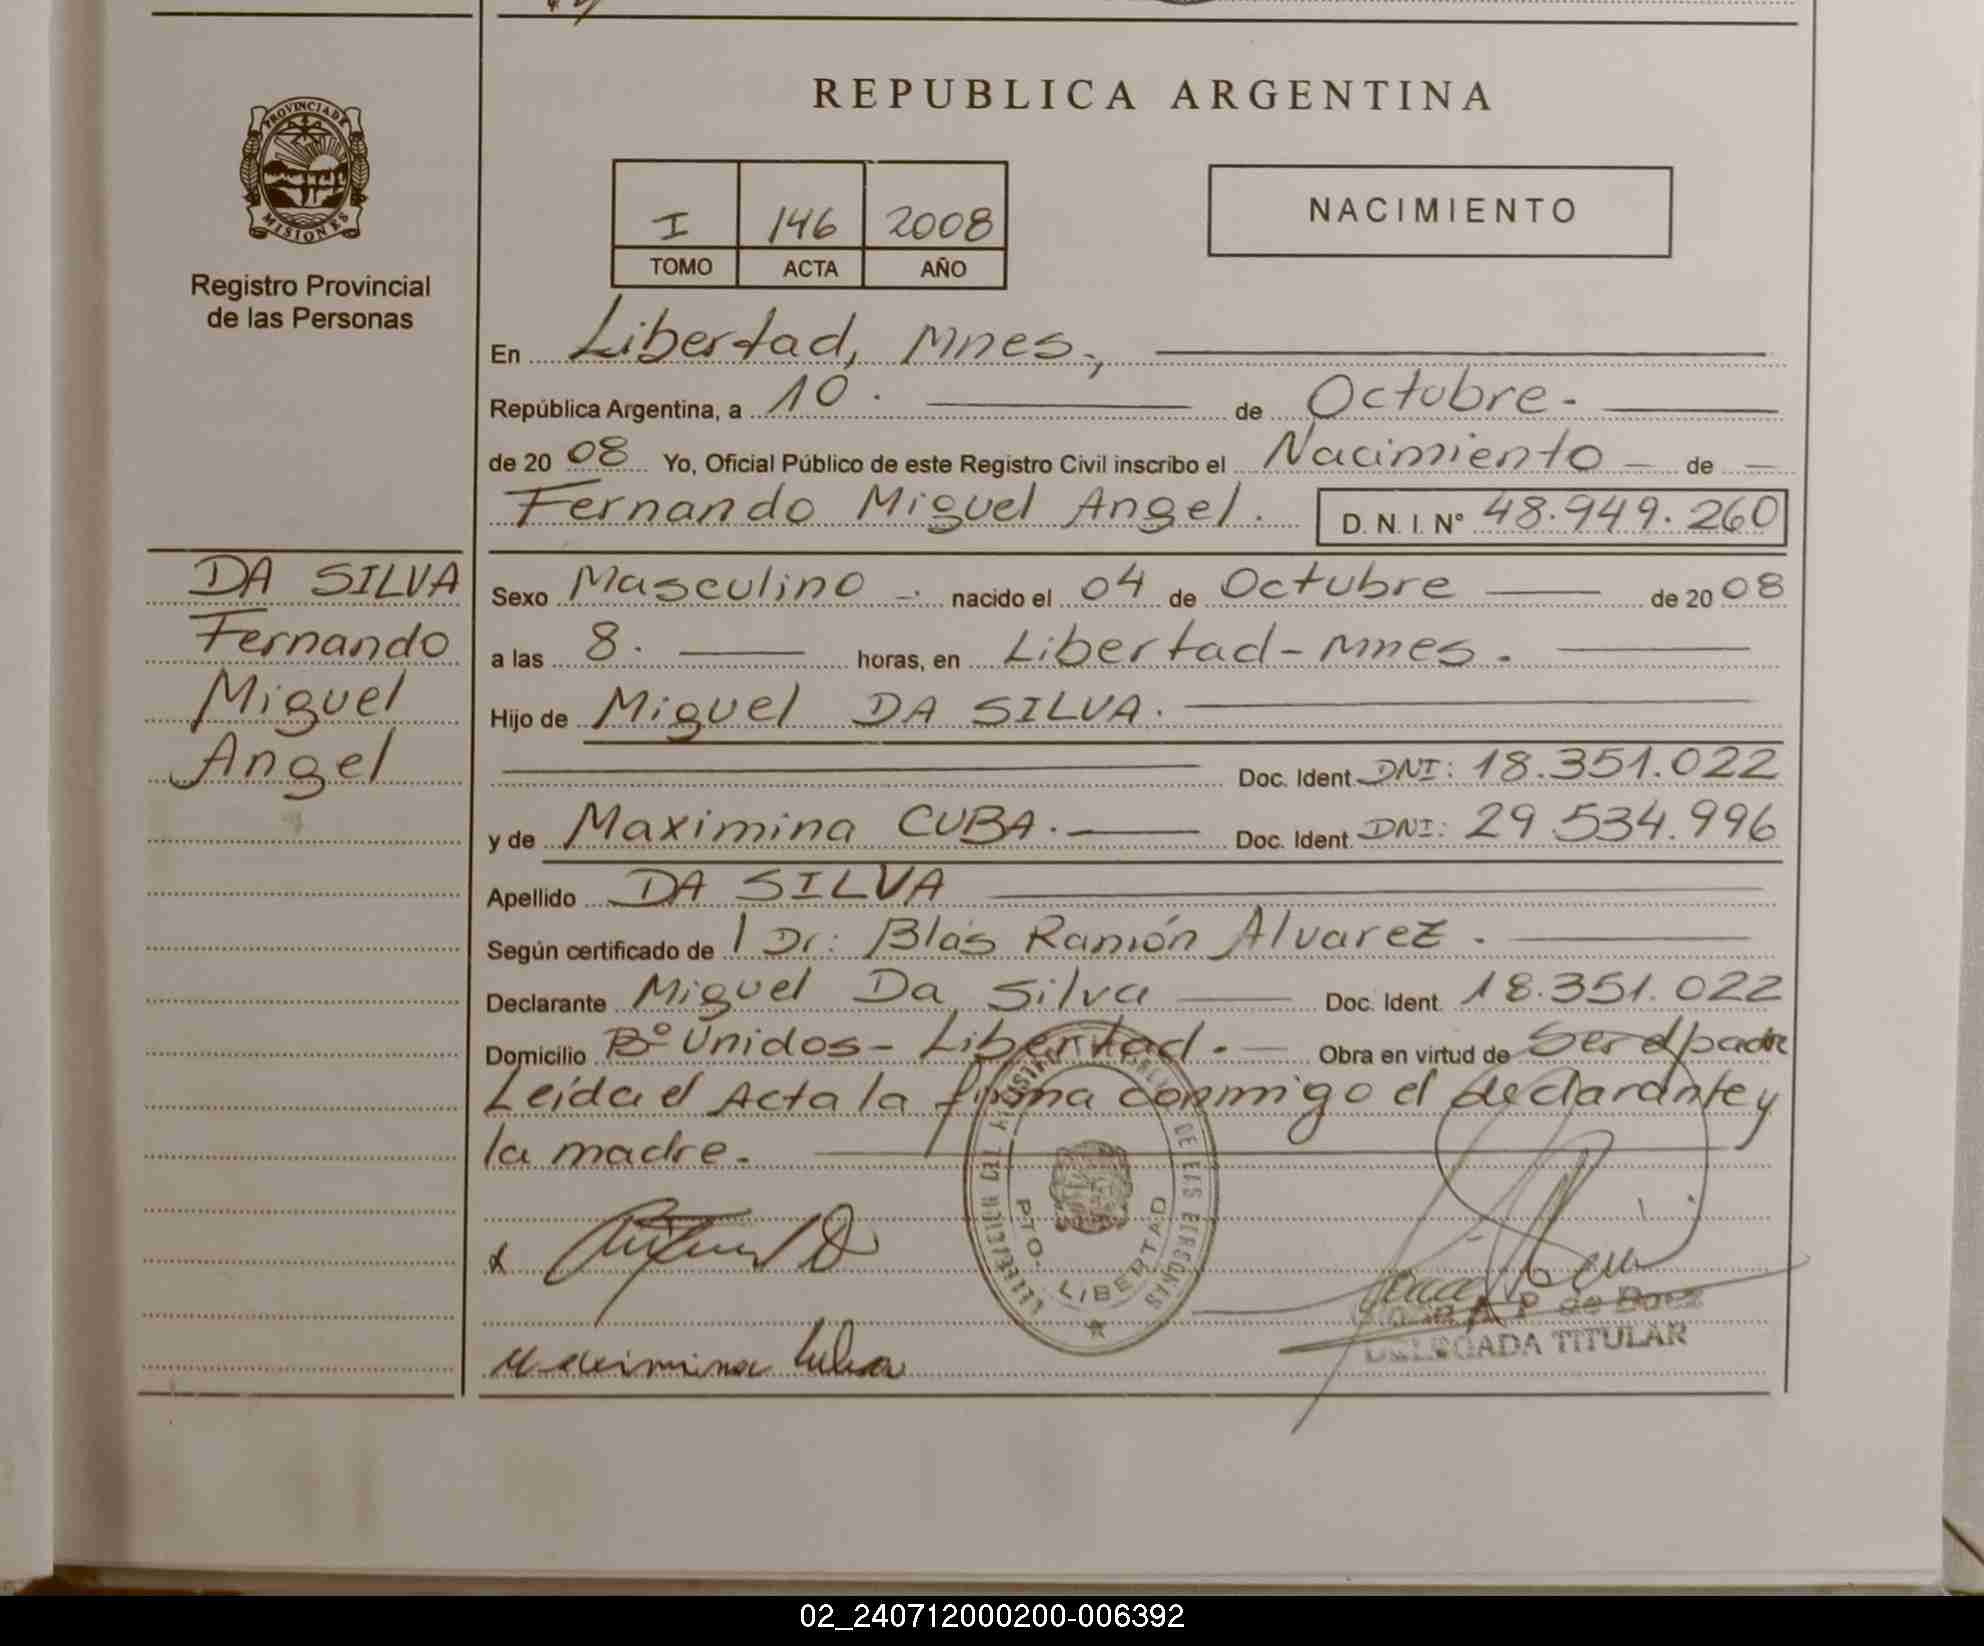 REPUBLICA ARGENTINA
PROVINCIA DE
MISIONES
Registro Provincial
de las Personas
I 146 2008
TOMO ACTA AÑO
NACIMIENTO
En Libertad, Mnes.,
República Argentina, a 10. de Octubre.
de 20 08 Yo, Oficial Público de este Registro Civil inscribo el Nacimiento de
Fernando Miguel Angel. D. N. I. N° 48.949.260
DA SILVA
Fernando
Miguel
Angel
Sexo Masculino nacido el 04 de Octubre de 20 08
a las 8. horas, en Libertad - Mnes.
Hijo de Miguel DA SILVA.
Doc. Ident. DNI: 18.351.022
y de Maximina CUBA. Doc. Ident. DNI: 29.534.996
Apellido DA SILVA
Según certificado de 1 Dr: Blás Ramón Alvarez.
Declarante Miguel Da Silva Doc. Ident. 18.351.022
Domicilio B° Unidos - Libertad. Obra en virtud de Ser el padre
Leída el Acta la firma conmigo el declarante y
la madre.
PTO. LIBERTAD
DE LAS PERSONAS
A. P. de Baez
DELEGADA TITULAR
Maximina Cuba
02_240712000200-006392